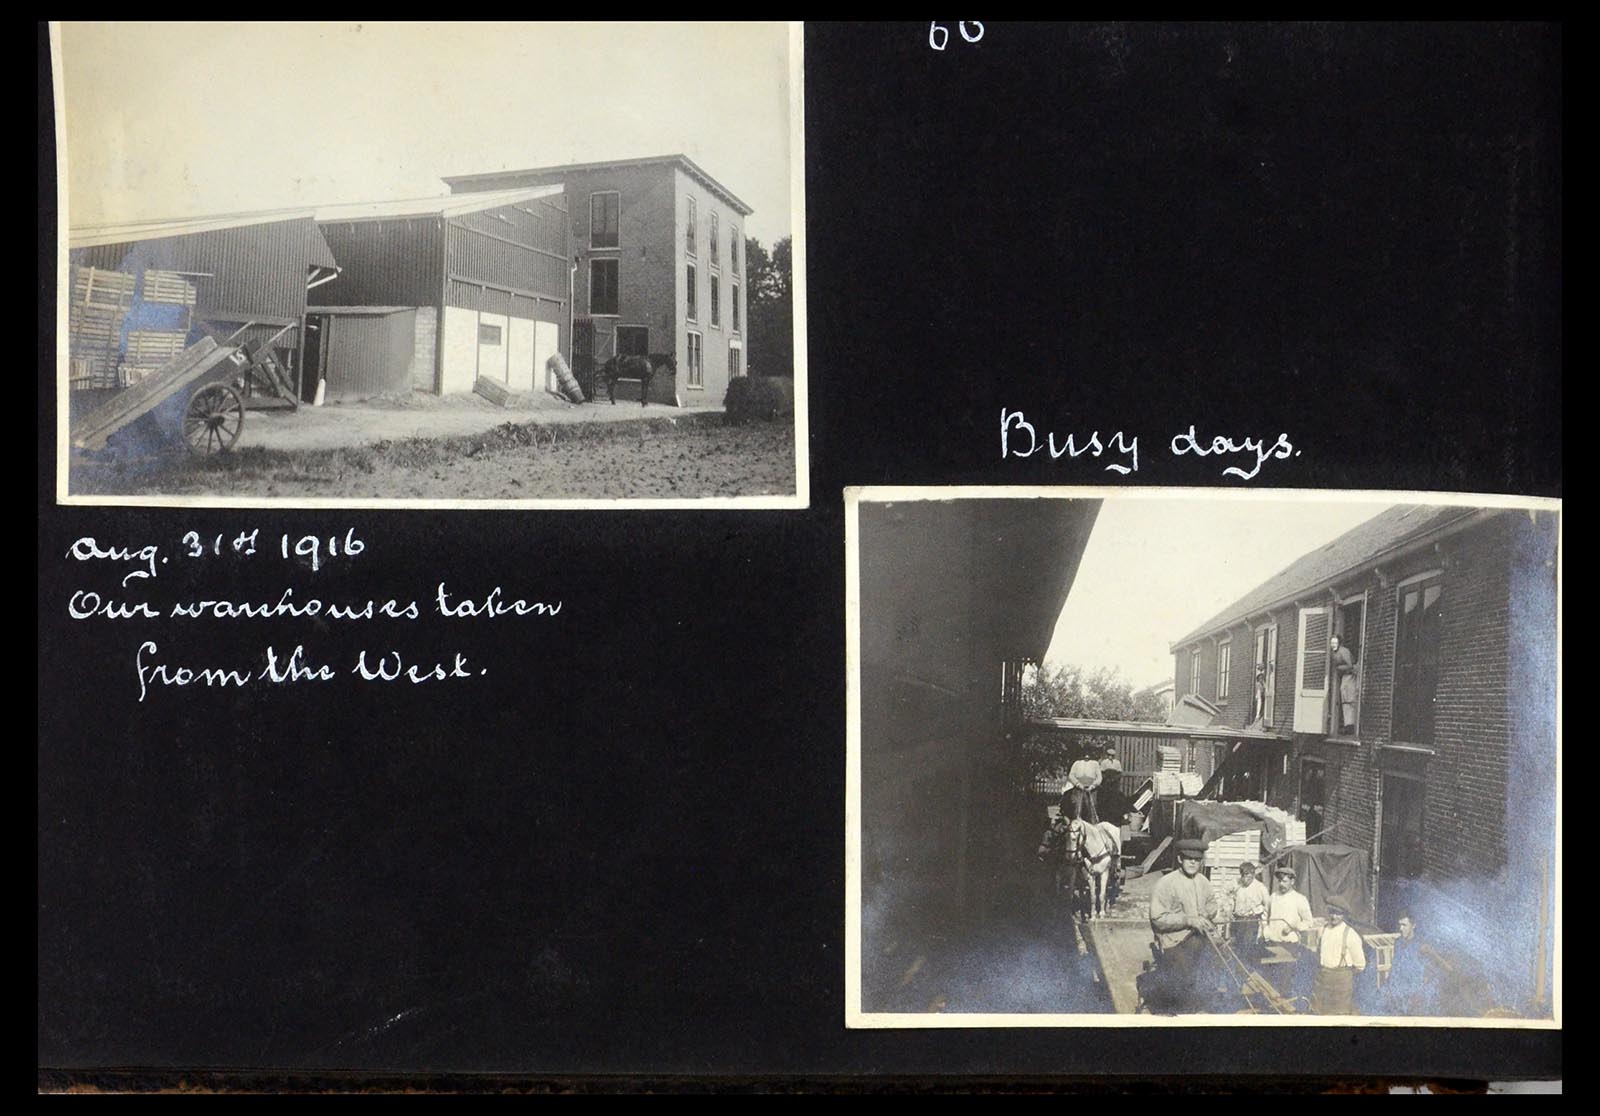 60
Aug. 31st 1916
Our warehouses taken
from the West.
Busy days.